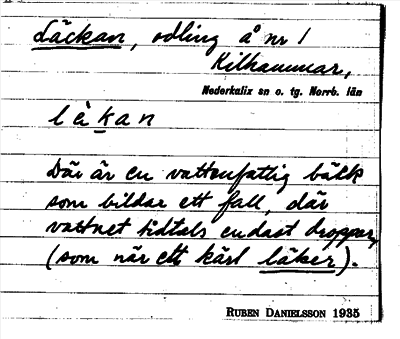 Läckan, odling å nr 1
Kilhammar,
Nederkalix sn o. tg. Norrb. län
lèkan
Där är en vattenfattig bäck
som bildar ett fall, där
vattnet tidtals endast droppar,
(som när ett kärl läker).
RUBEN DANIELSSON 1935